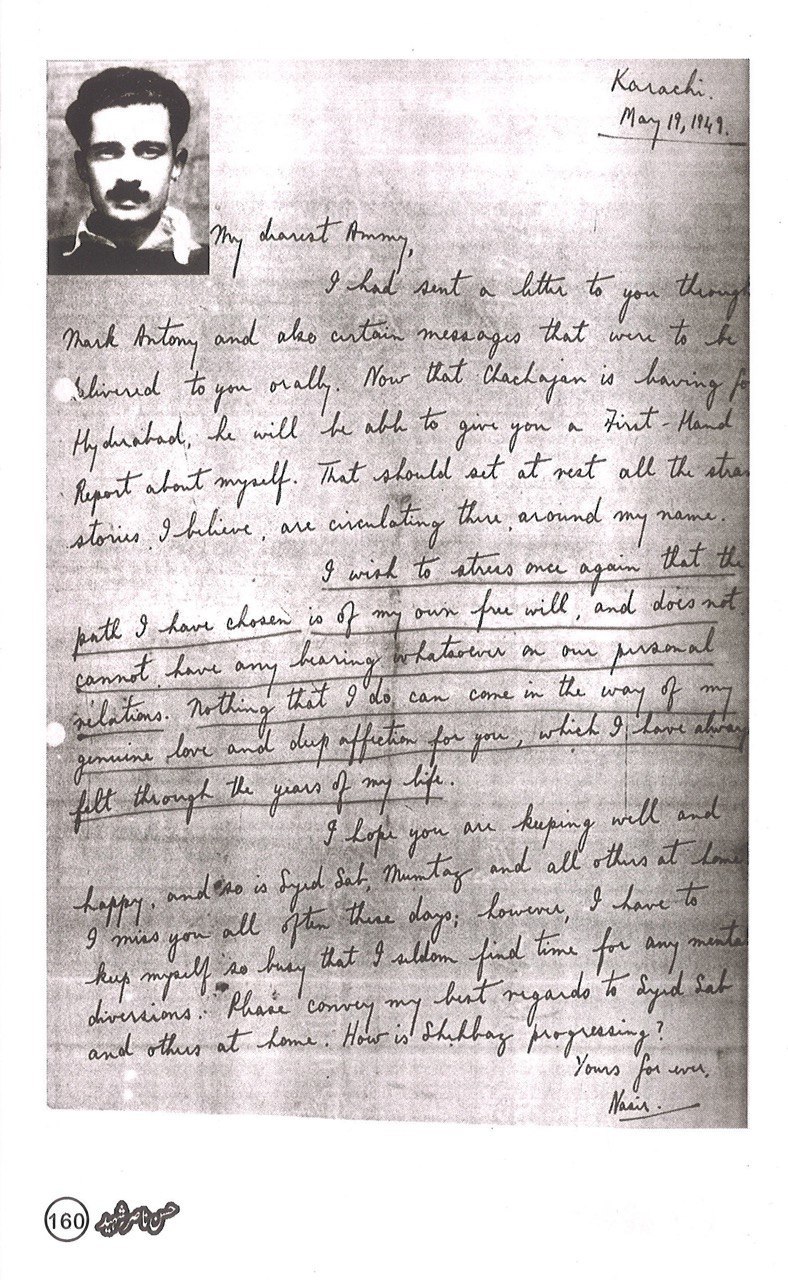 Karachi.
May 19, 1949.
My dearest Ammy,
I had sent a letter to you through
Mark Antony and also certain messages that were to be
delivered to you orally. Now that Chachajan is having for
Hyderabad, he will be able to give you a First-Hand
Report about myself. That should set at rest all the stran
stories, I believe, are circulating there, around my name.
I wish to stress once again that the
path I have chosen is of my own free will, and does not
cannot, have any bearing whatsoever on our personal
relations. Nothing that I do, can come in the way of my
genuine love and deep affection for you, which I have always
felt through the years of my life.
I hope you are keeping well and
happy, and so is Syed Sab, Mumtaz and all others at home.
I miss you all often these days; however, I have to
keep myself so busy that I seldom find time for any mental
diversions. Please convey my best regards to Syed Sab
and others at home. How is Shehbaz progressing?
Yours for ever,
Nasir.
160 حسن ناصر شہید